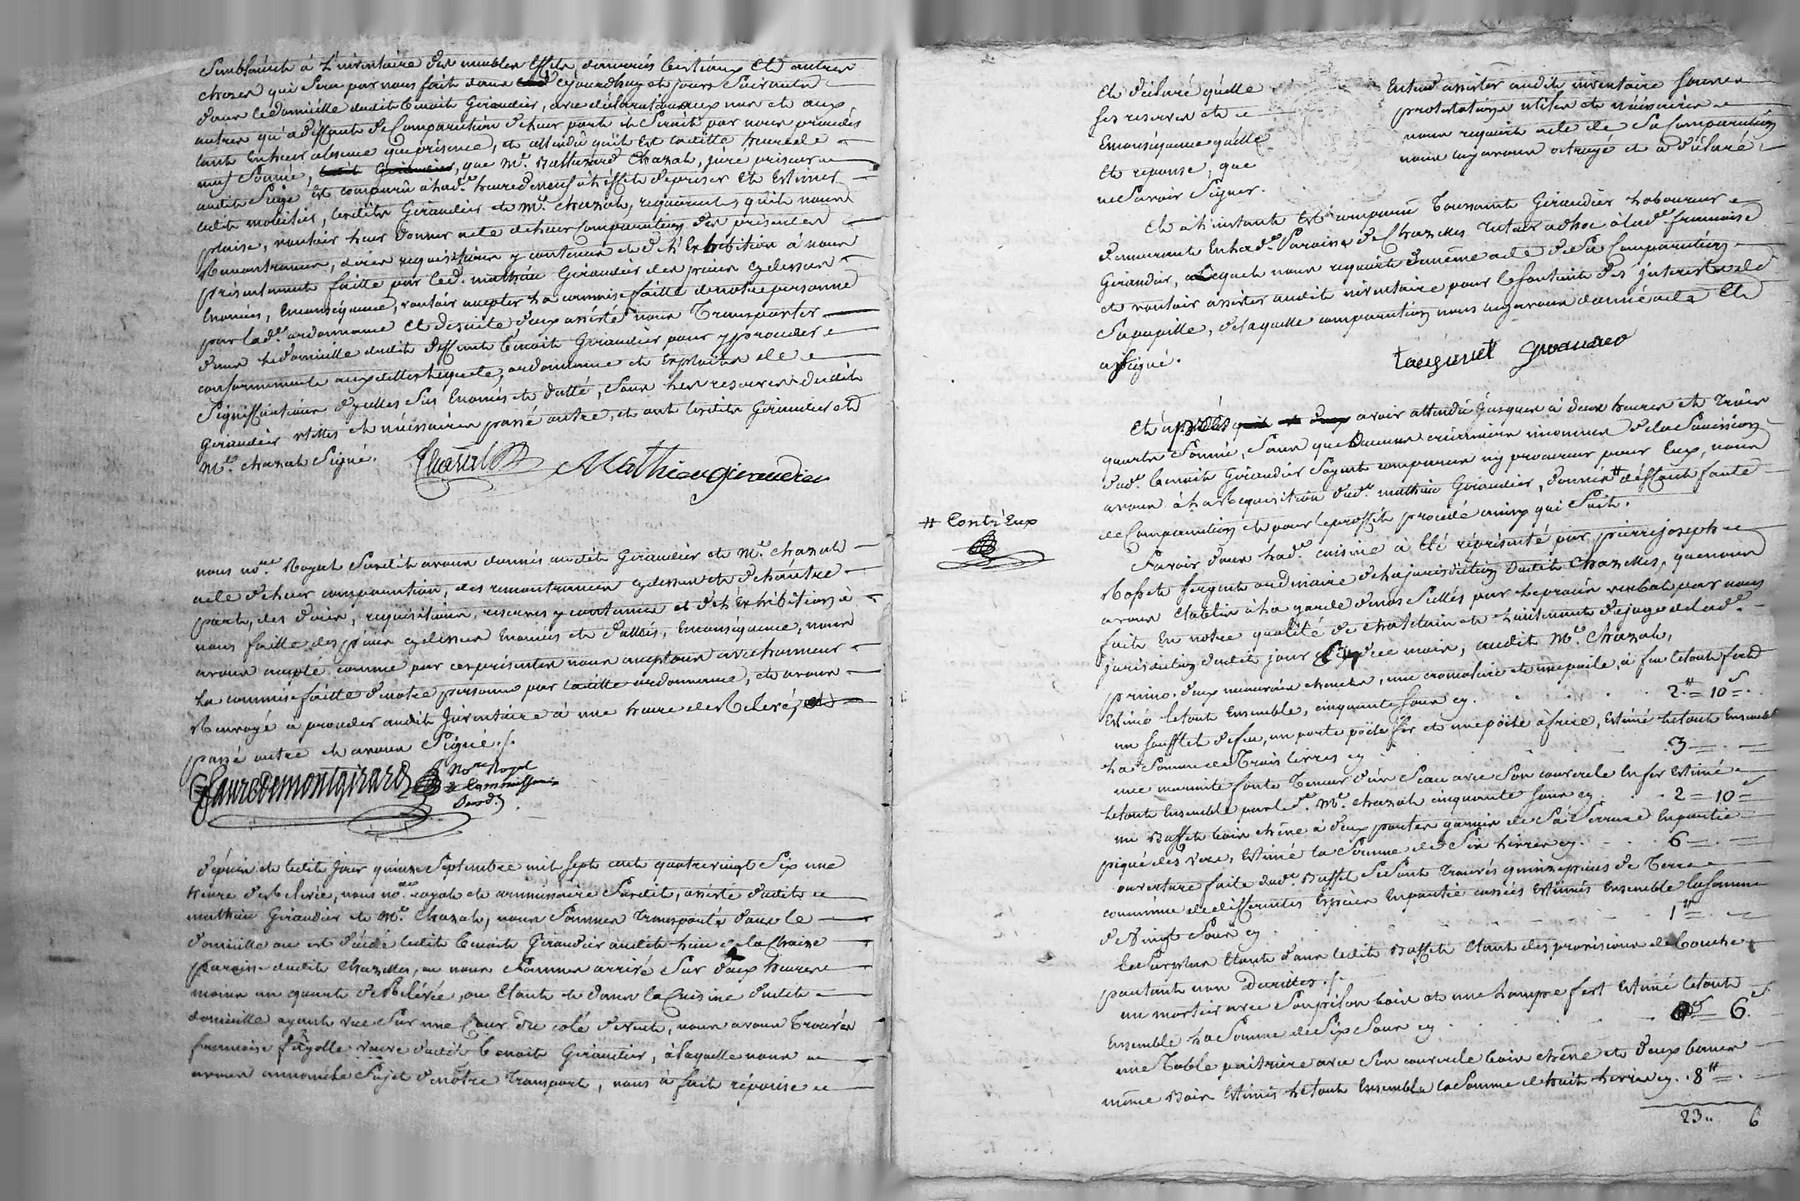 semblement à l'inventaire des meubles effets danrées bestiaux et autres
choses qui sera par nous fait dans cejourdhuy et jours suivants
dans le domicille dudit benoit Giraudier, avec déclaration aux uns et aux
autres qu'à deffaut de comparution de leur part il seroit par nous procédé
tant en leur absence que présence, et attendu qu'il est laditte heure de
neuf sonnée, que Me. Balthazard Chazal, juré priseur
audit siège est comparu à lad. heure de neuf à l'effet de priser et estimer
ledit mobilier, lesdits Giraudier et Me. Chazal, requerants qu'il nous
plaise, vouloir leur donner acte de leur comparution des présentes
Remontrances, dires requisitoires y contenus et de l'Exhibition à nous
présentement faitte par led. mathieu Giraudier des pièces cydessus
énoncées, Enconséquence, vouloir accepter la commise faitte de notre personne
par lad. ordonnance et desuite d'eux assisté nous Transporter
dans le domicille dudit deffunt benoit Giraudier pour y procéder
conformement auxdittes requete, ordonnance et exploits de
Signiffications d'ycelles sus énoncés et dattés, sous les reserves dudit
Giraudier utilles et nécessaires passé outre, et ont lesdits Giraudier et
Me. Chazal Signé.
Chazal Mathieu giraudier
nous nore. Royal susdit avons donnés audits Giraudier et Me. Chazal
acte de leur comparution, des remontrances cydessus et de l'autre
part, des dires, requisitoires, reserves y contenues et de l'Exhibition à
nous faitte des pièces cydessus énoncées et dattées, Enconséquence, nous
avons accepté comme par ces présentes nous acceptons avec honneur
la commise faitte de notre personne par laditte ordonnance, et avons
Renvoyé à proceder audit Inventaire à une heure de Relevée,
passé outre et avons Signé ./.
Faure de montgirard nore Royal
& Commissaire
Susd.
Depuis et ledit jour quinze Septembre mil sept cent quatrevingt Six une
heure de Relevée, nous nore. royal et commissaire susdit, assisté dudit
mathieu Giraudier et Me. Chazal, nous sommes transporté dans le
domicille ou est décédé ledit benoit Giraudier audit lieu de la
paroisse dudit Chazelles, ou nous sommes arrivé sur deux heures
moins un quart de Relevée, ou étant et dans la Cuisine dudit
domicille ayant vue sur une Cour du coté de vent, nous avons trouvés
francoise fayolle veuve dudit benoit Giraudier, à laquelle nous
avons annoncé le Sujet de notre transport, nous à fait réponse
et déclaré qu'elle Entend assister audit inventaire sous
ses reserves et protestations utiles et nécessaires
Enconséquence qu'elle nous requiert acte de sa comparution
et reponse, que nous luy avons octroyé et a déclaré
ne Savoir Signer.
Et à l'instant est comparu Toussaint Giraudier laboureur
demeurant en lad. Paroisse de Chazelles tuteur adhoc à lad. francoise
Giraudier, Lequel nous requiert de même acte de sa comparution
et vouloir assister audit inventaire pour le soutient des interets de
Sa pupille, de laquelle comparution nous luy avons donné acte Et
a Signé.
tougsaint Giraudier
Et après avoir attendu jusques à deux heures et trois
quarts sonnés, sans que aucuns créanciers inconnus de la succession
dud. benoit Giraudier soyent comparus ny procureur pour eux, nous
avons à la Requisition dud. mathieu Giraudier, donné # deffaut faute
de comparution et pour le proffit procédé ainsy qui suit.
# Contr'Eux
Savoir dans lad. cuisine à Eté représenté par pierre joseph
sergent ordinaire de la jurisdiction dudit Chazelles, que nous
avons établir à la garde de nos scellés par le procès verbal par nous
fait En notre qualité de Chatelain et lieutenant de juge de lad.
jurisdiction dudit jour de ce mois, audit Me. Chazal,
primo, deux mauvais chenets, une cremaliere et une paele, à feu le tout fer
Estimé le tout Ensemble, cinquante sous cy. 2₶ = 10s
un soufflet de feu, un porte poële fer et une poële à frire, Estimé le tout Ensemble
la Somme de Trois livres cy 3 =
une marmite fonte tenant d'un seau avec son couvercle en fer estimé
le tout Ensemble par led. Me. Chazal cinquante sous cy. 2 = 10 =
un Buffet bois chêne à deux portes garnie de sa serrure en partie
piqué des vers, estimé la somme de six livres cy. 6 =
ouverture faite dud. Buffet se sont trouvés quinze pièces de terre
commune de differentes espèces en partie cassées estimés ensemble la somme
de Vingt Sous cy 1₶ =
Le surplus étant dans ledit Buffet étant des provisions de bouche
partant non Décrittes ./.
un mortier avec son pilon bois et une lampe fert estimé letout
ensemble la Somme de Six Sous cy. 6s.
une Table avec son couvercle bois chêne et deux bancs
même Bois estimés le tout ensemble la somme de huit livres cy. 8₶ =
23 .. 6